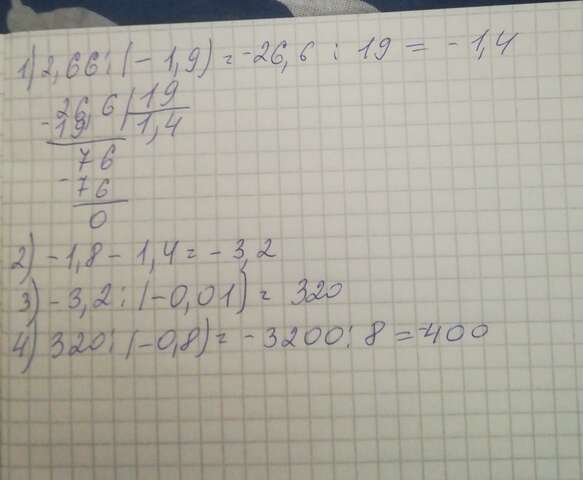 1) 2,66 : (- 1,9) = -26,6 : 19 = - 1,4
- 26,6 | 19
19 1,4
76
- 76
0
2) - 1,8 - 1,4 = - 3,2
3) - 3,2 : (-0,01) = 320
4) 320 : (-0,8) = - 3200 : 8 = -400